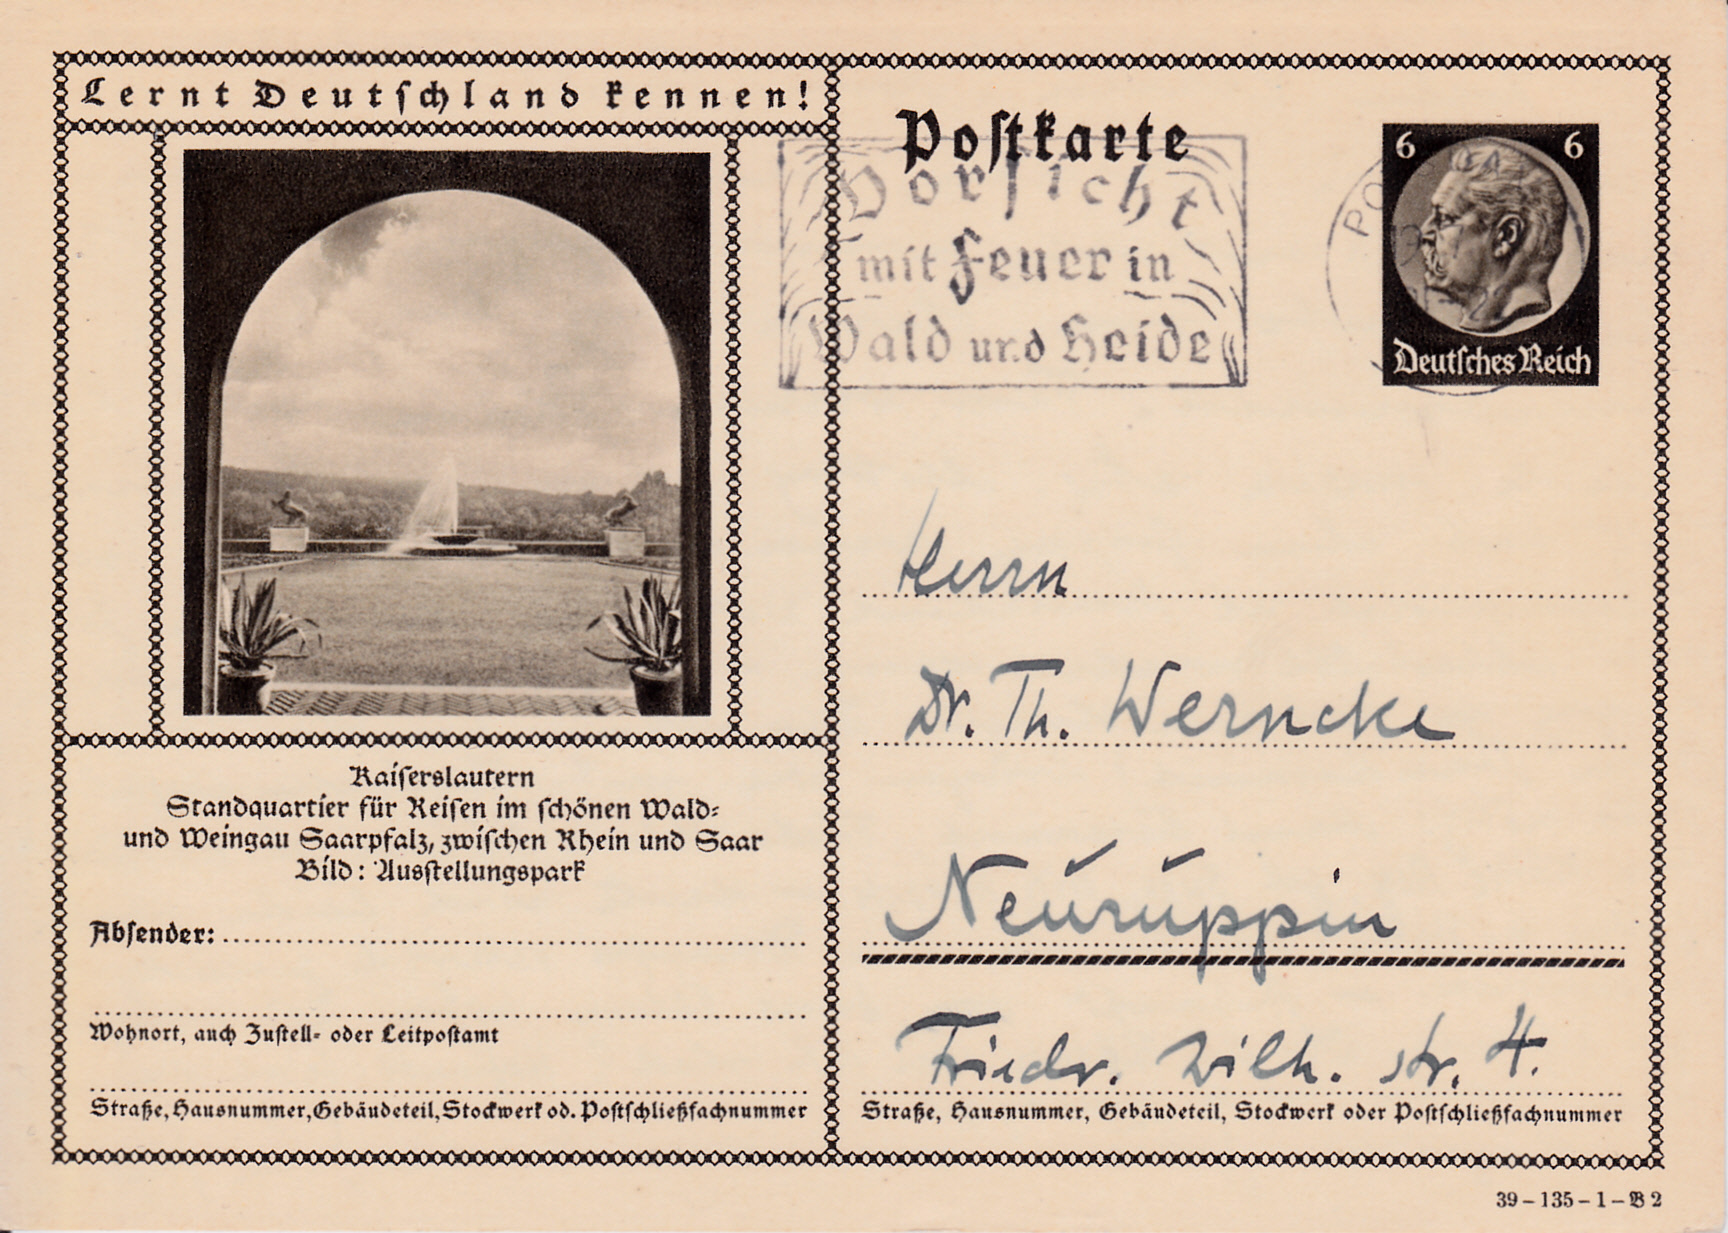 Lernt Deutschland kennen!
Postkarte
Vorsicht
mit Feuer in
Wald und Heide
6 6
Deutsches Reich
Kaiserslautern
Standquartier für Reisen im schönen Wald-
und Weingau Saarpfalz, zwischen Rhein und Saar
Bild: Ausstellungspark
Absender:
Wohnort, auch Zustell- oder Leitpostamt
Straße, Hausnummer, Gebäudeteil, Stockwerk od. Postschließfachnummer
Herrn
Dr. Th. Werncke
Neuruppin
Friedr. Wilh. str. 4.
Straße, Hausnummer, Gebäudeteil, Stockwerk oder Postschließfachnummer
39-135-1-B 2